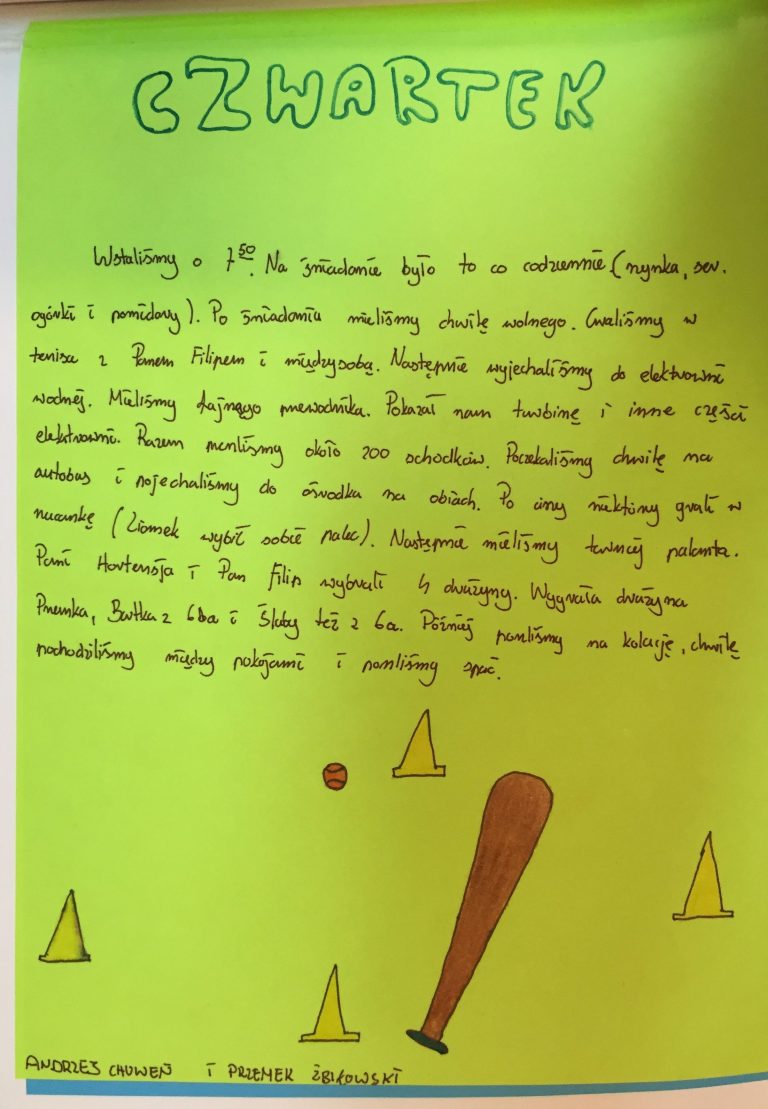 CZWARTEK
Wstaliśmy o 7⁵⁰. Na śniadanie było to co codziennie (szynka, ser,
ogórki i pomidory). Po śniadaniu mieliśmy chwilę wolnego. Graliśmy w
tenisa z Panem Filipem i między sobą. Następnie wyjechaliśmy do elektrowni
wodnej. Mieliśmy fajnego przewodnika. Pokazał nam turbinę i inne części
elektrowni. Razem przeszliśmy około 200 schodków. Poczekaliśmy chwilę na
autobus i pojechaliśmy do ośrodka na obiad. Po niektórzy grali w
(Ziomek wybił sobie palec). Następnie mieliśmy turniej palanta.
Pani Hortensja i Pan Filip wybrali 4 drużyny. Wygrała drużyna
Przemka, Bartka z 6ba i Śluby też z 6a. Później poszliśmy na kolację, chwilę
pochodziliśmy między pokojami i poszliśmy spać.
ANDRZEJ CHUWEŃ I PRZEMEK ŻBIKOWSKI